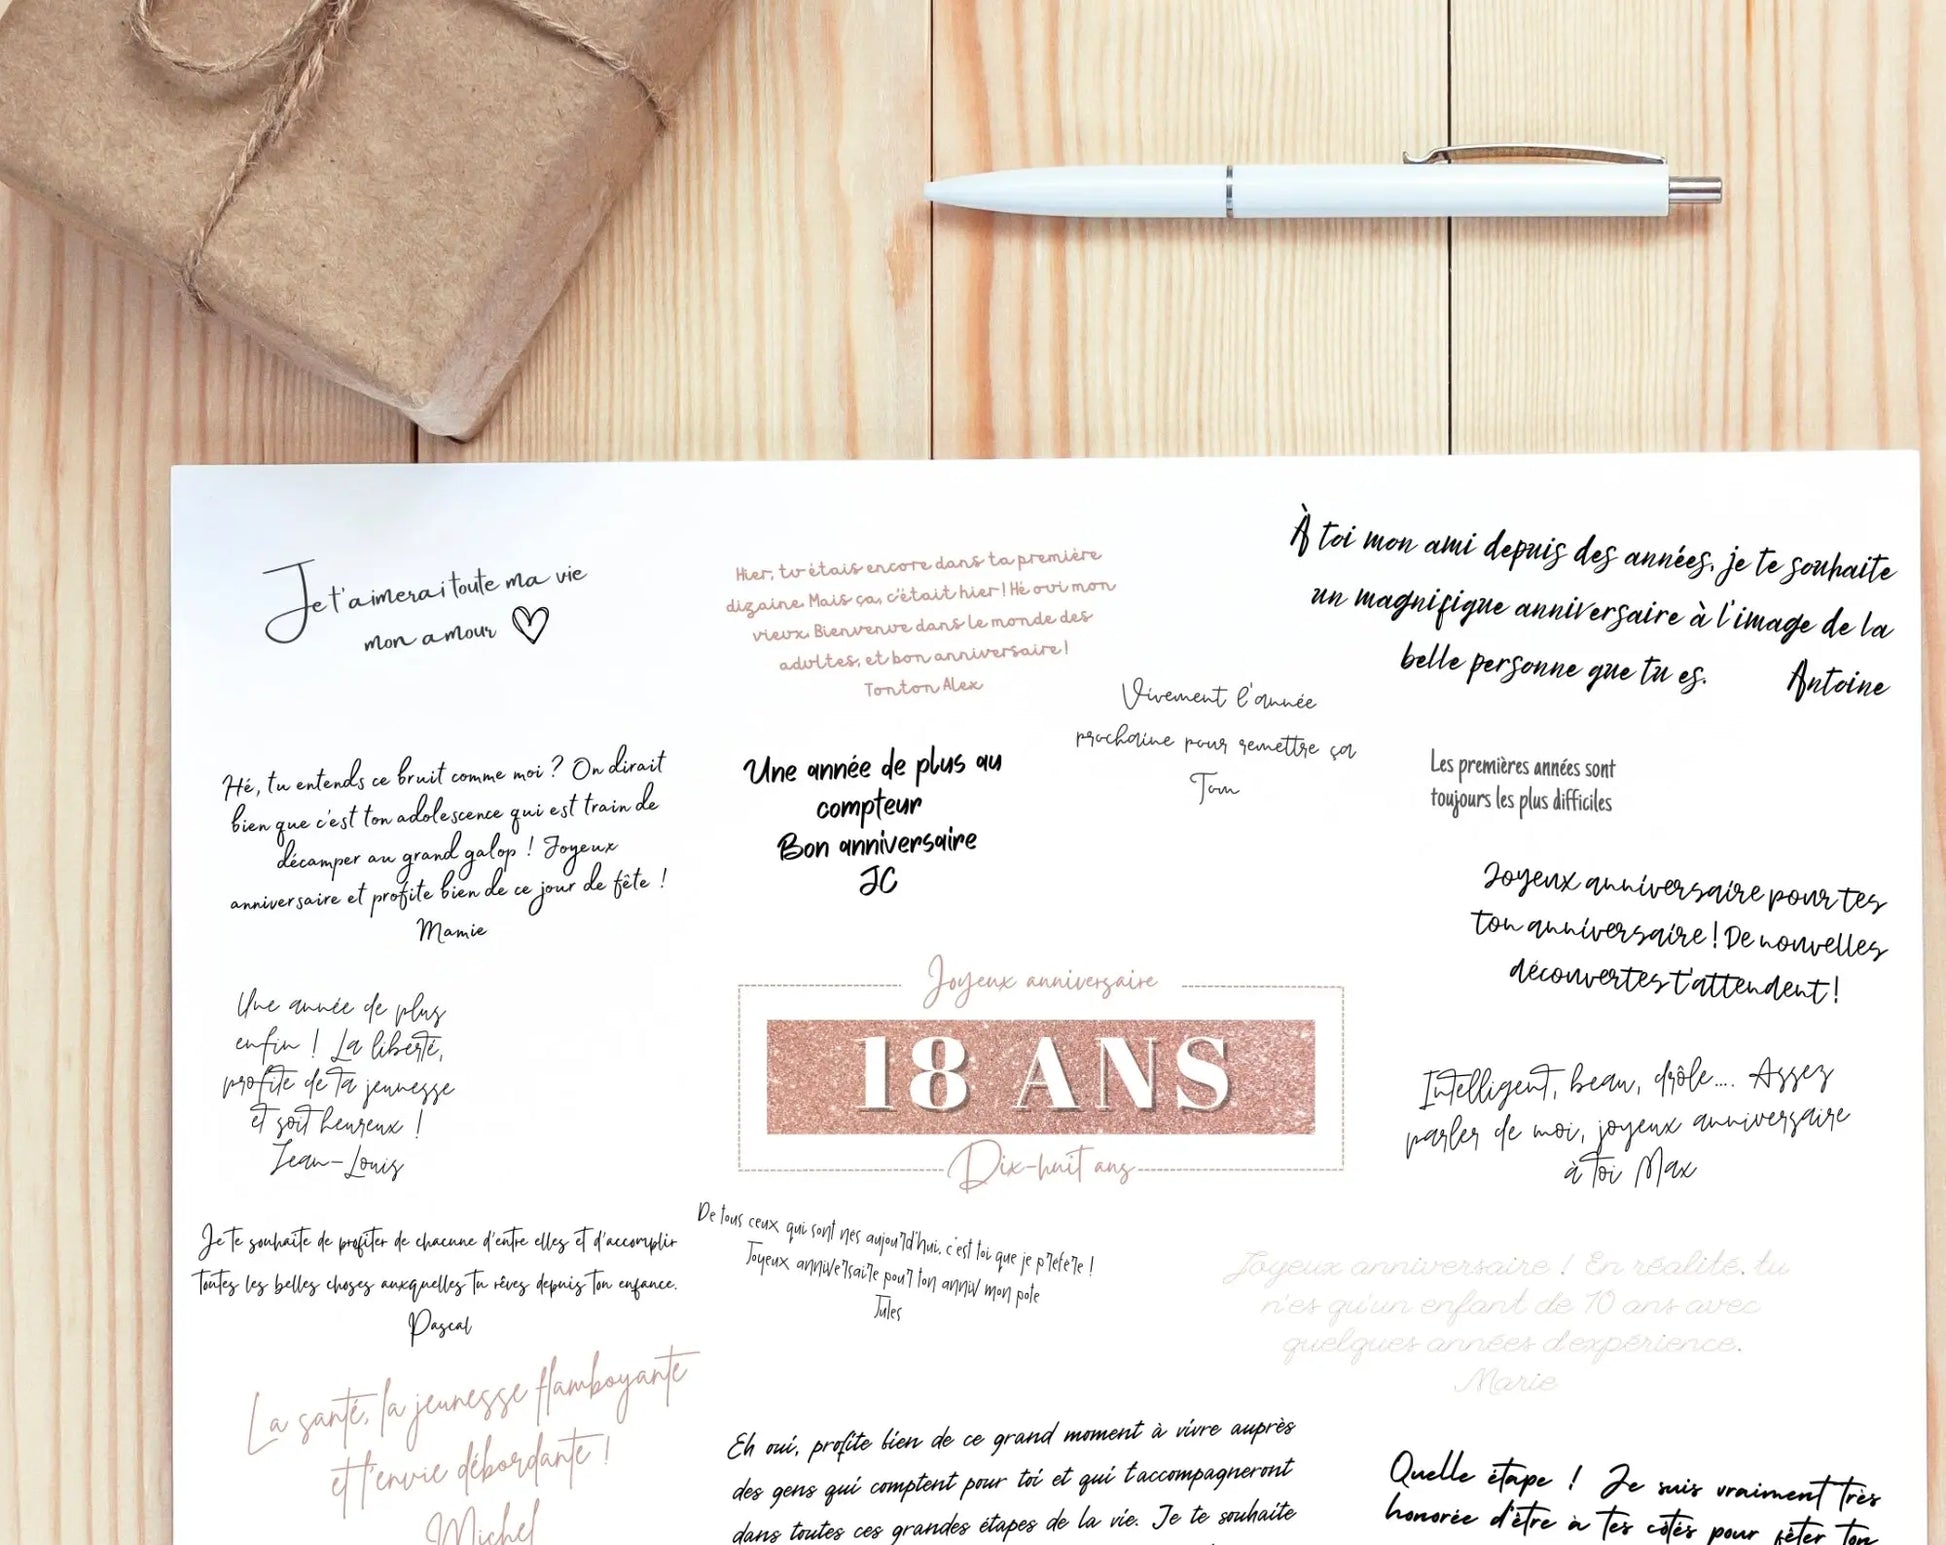 Je t'aimerai toute ma vie
mon amour
Hier, tu étais encore dans ta première
dizaine. Mais ça, c'était hier ! Hé oui mon
vieux. Bienvenue dans le monde des
adultes, et bon anniversaire !
Tonton Alex
À toi mon ami depuis des années, je te souhaite
un magnifique anniversaire à l'image de la
belle personne que tu es. Antoine
Vivement l'année
prochaine pour remettre ça
Tom
Hé, tu entends ce bruit comme moi ? On dirait
bien que c'est ton adolescence qui est train de
décamper au grand galop ! Joyeux
anniversaire et profite bien de ce jour de fête !
Mamie
Une année de plus au
compteur
Bon anniversaire
JC
Les premières années sont
toujours les plus difficiles
Joyeux anniversaire pour tes
ton anniversaire ! De nouvelles
découvertes t'attendent !
Une année de plus
enfin ! La liberté,
profite de ta jeunesse
et soit heureux !
Jean-Louis
Joyeux anniversaire
18 ANS
Dix-huit ans
Intelligent, beau, drôle.... Assez
parler de moi, joyeux anniversaire
à toi Max
Je te souhaite de profiter de chacune d'entre elles et d'accomplir
toutes les belles choses auxquelles tu rêves depuis ton enfance.
Pascal
De tous ceux qui sont nes aujourd'hui, c'est toi que je prefere !
Joyeux anniversaire pour ton anniv mon pote
Jules
Joyeux anniversaire ! En réalité, tu
n'es qu'un enfant de 10 ans avec
quelques années d'expérience.
Marie
La santé, la jeunesse flamboyante
et l'envie débordante !
Michel
Eh oui, profite bien de ce grand moment à vivre auprès
des gens qui comptent pour toi et qui t'accompagneront
dans toutes ces grandes étapes de la vie. Je te souhaite
Quelle étape ! Je suis vraiment très
honorée d'être à tes côtés pour fêter ton